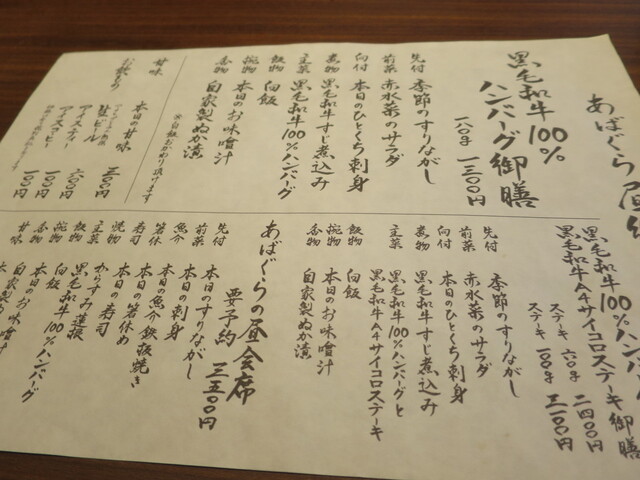 あばぐら昼
黒毛和牛100%
ハンバーグ御膳
180g 一三〇〇円
先付 季節のすりながし
前菜 赤水菜のサラダ
向付 本日のひとくち刺身
煮物 黒毛和牛すじ煮込み
主菜 黒毛和牛100%ハンバーグ
飯物 白飯
椀物 本日のお味噌汁
香物 自家製ぬか漬
※白飯おかわり頂けます
甘味 本日の甘味 三〇〇円
お飲もの
生ビール 六〇〇円
アイスティー 一〇〇円
アイスコーヒー 一〇〇円
黒毛和牛100%ハンバ
黒毛和牛A4サイコロステーキ御膳
ステーキ 六〇g 二四〇〇円
ステーキ 一〇〇g 三一〇〇円
先付 季節のすりながし
前菜 赤水菜のサラダ
向付 本日のひとくち刺身
煮物 黒毛和牛すじ煮込み
主菜 黒毛和牛100%ハンバーグと
黒毛和牛A4サイコロステーキ
飯物 白飯
椀物 本日のお味噌汁
香物 自家製ぬか漬
あばぐらの昼会席
要予約 三五〇〇円
先付 本日のすりながし
前菜 本日の刺身
魚介 本日の魚介鉄板焼き
箸休 本日の箸休め
寿司 本日の寿司
焼物 からすみ蓮根
主菜 黒毛和牛100%ハンバーグ
飯物 白飯
椀物 本日のお味噌汁
香物 自家製ぬか漬
甘味 本